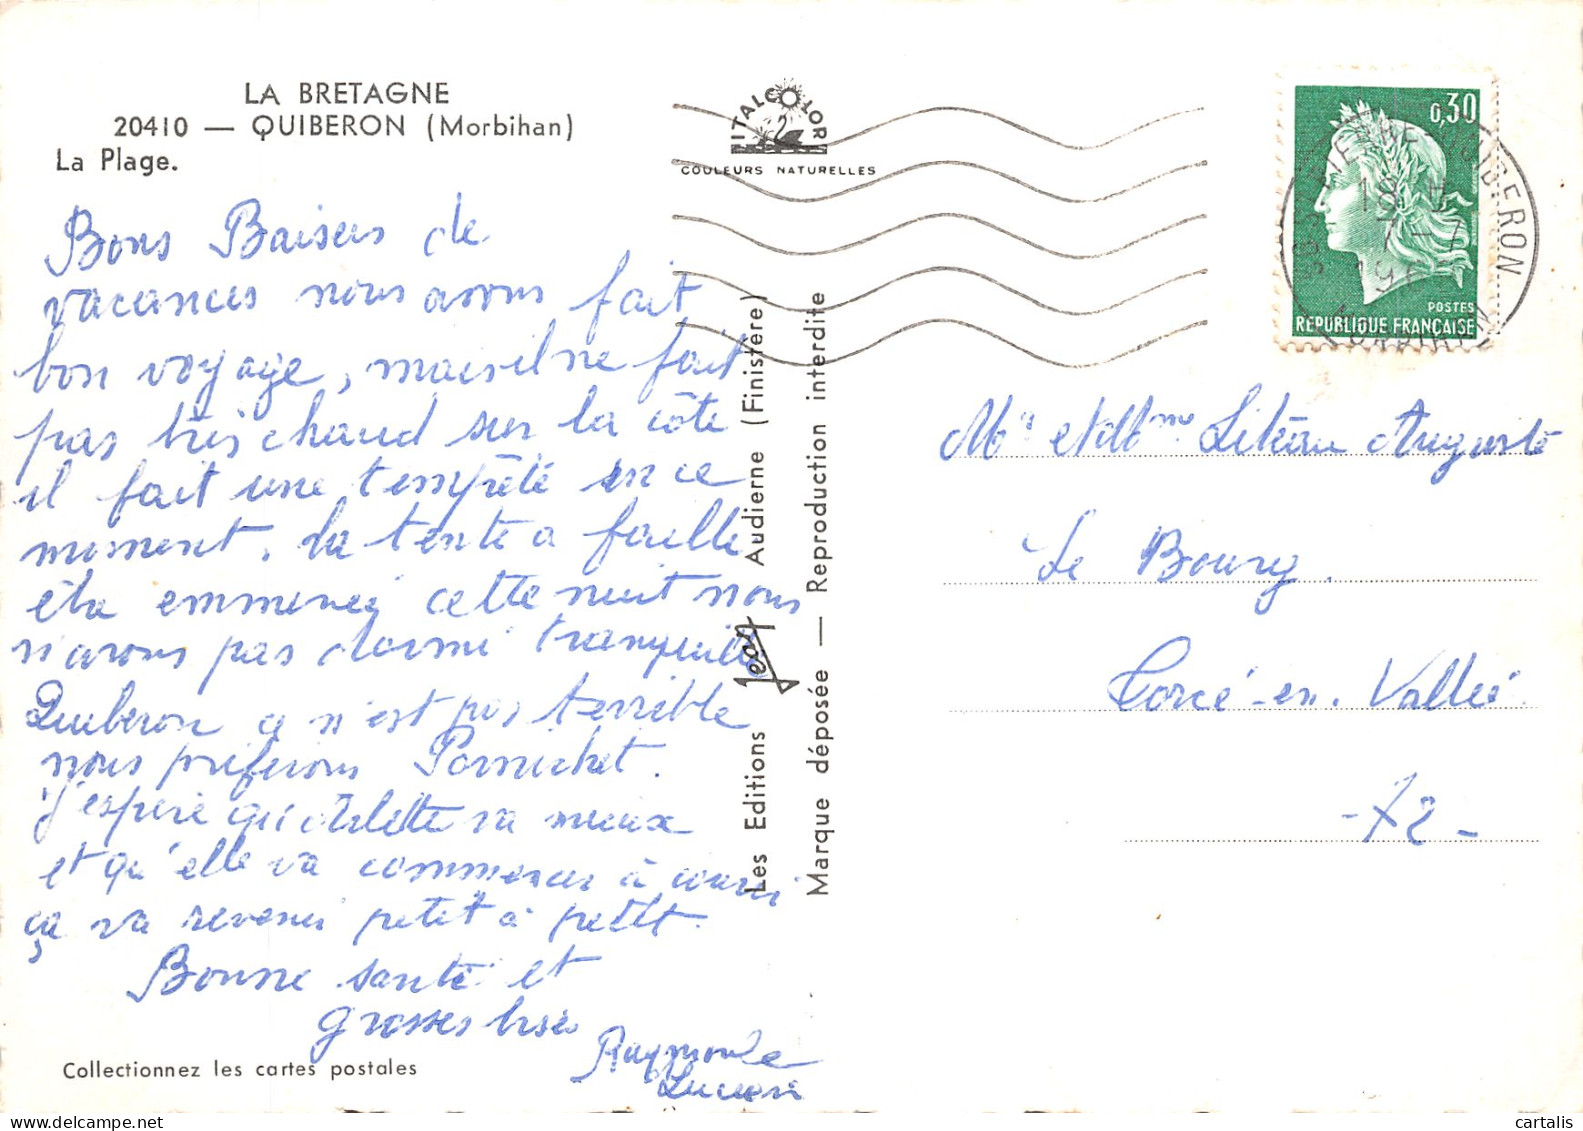 LA BRETAGNE
20410 — QUIBERON (Morbihan)
La Plage.
Bons Baisers de
vacances nous avons fait
bon voyage, mais il ne fait
pas très chaud sur la côte
il fait une tempêté en ce
moment. la tente a faille
être emmenéz cette nuit nous
n'avons pas dormi tranquille
Quiberon ça n'est pas terrible
nous préférons Pornichet.
J'espère qu'Arlette va mieux
et qu'elle va commencer à courir
ça va revenir petit à petit.
Bonne santé et
grosses bises
Raymonde
Lucien
Collectionnez les cartes postales
Les Editions Jean Audierne (Finistère)
Marque déposée — Reproduction interdite
ITALCOLOR
COULEURS NATURELLES
0,30
POSTES
RÉPUBLIQUE FRANÇAISE
PIERRE QUIBERON
18 H
MORBIHAN
Mr et Mme Litéau Auguste
Le Bourg.
Torcé-en-Vallée
-72-
cartalis